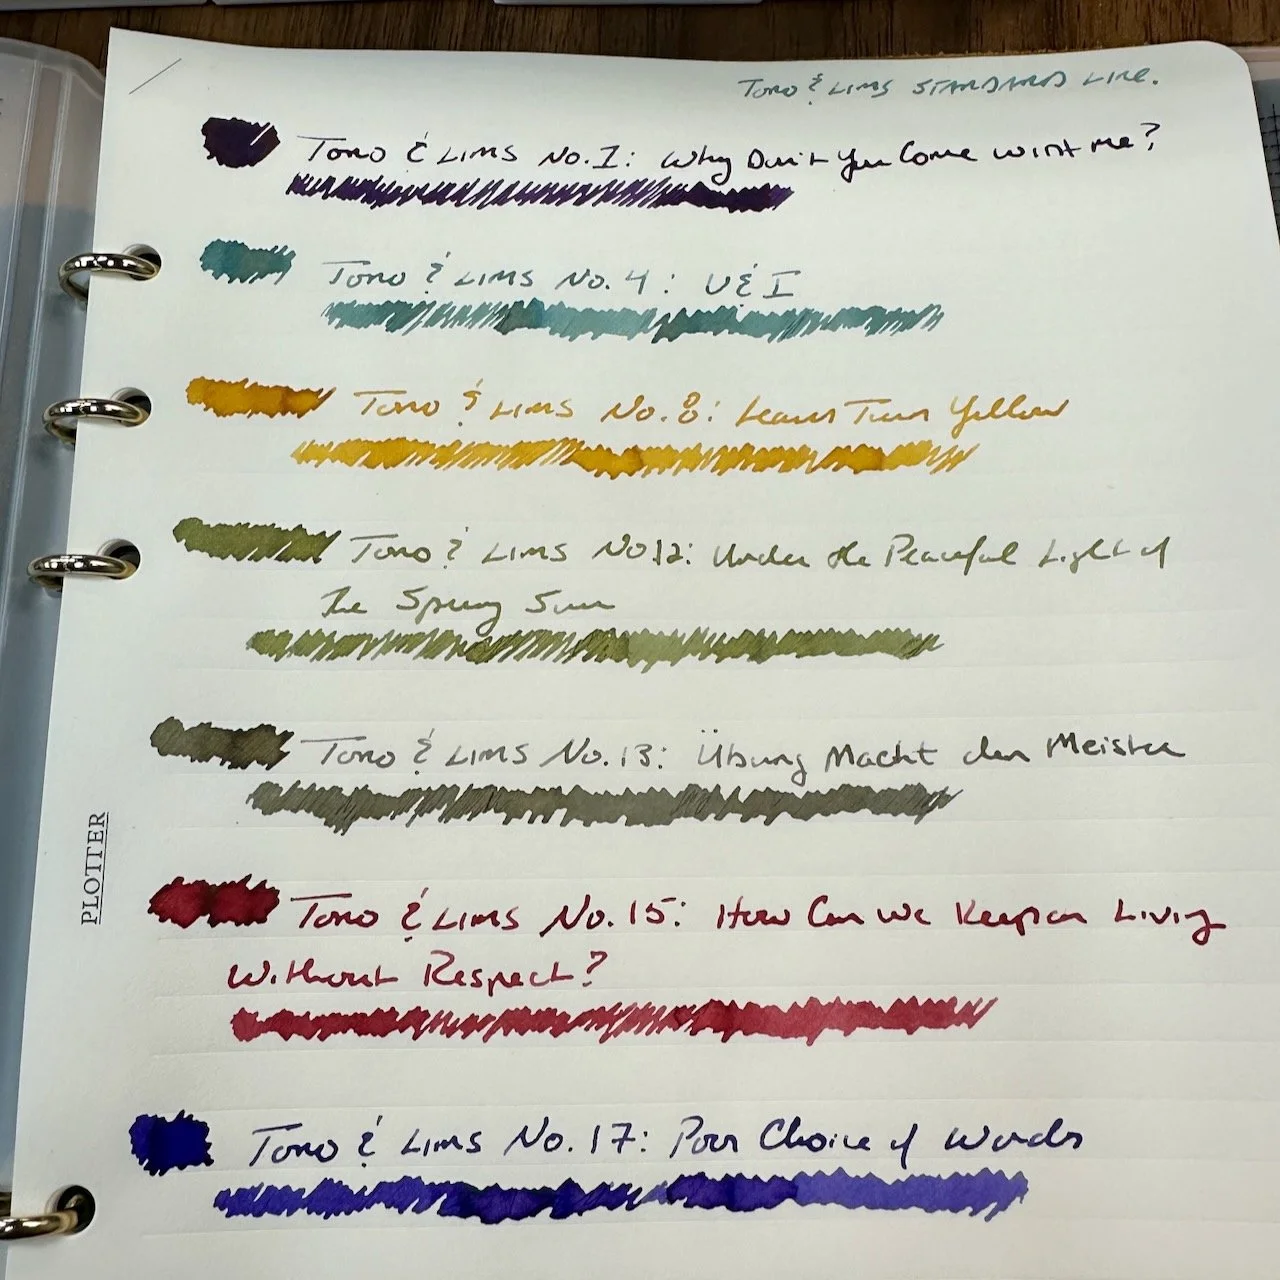 Tono & Lims Standard Line.
Tono & Lims No. 1: Why Don't You Come With Me?
Tono & Lims No. 4: U & I
Tono & Lims No. 8: Leaves Turn Yellow
Tono & Lims No. 12: Under the Peaceful Light of
The Spring Sun
Tono & Lims No. 13: Übung Macht den Meister
Tono & Lims No. 15: How Can We Keep on Living
Without Respect?
Tono & Lims No. 17: Poor Choice of Words
PLOTTER